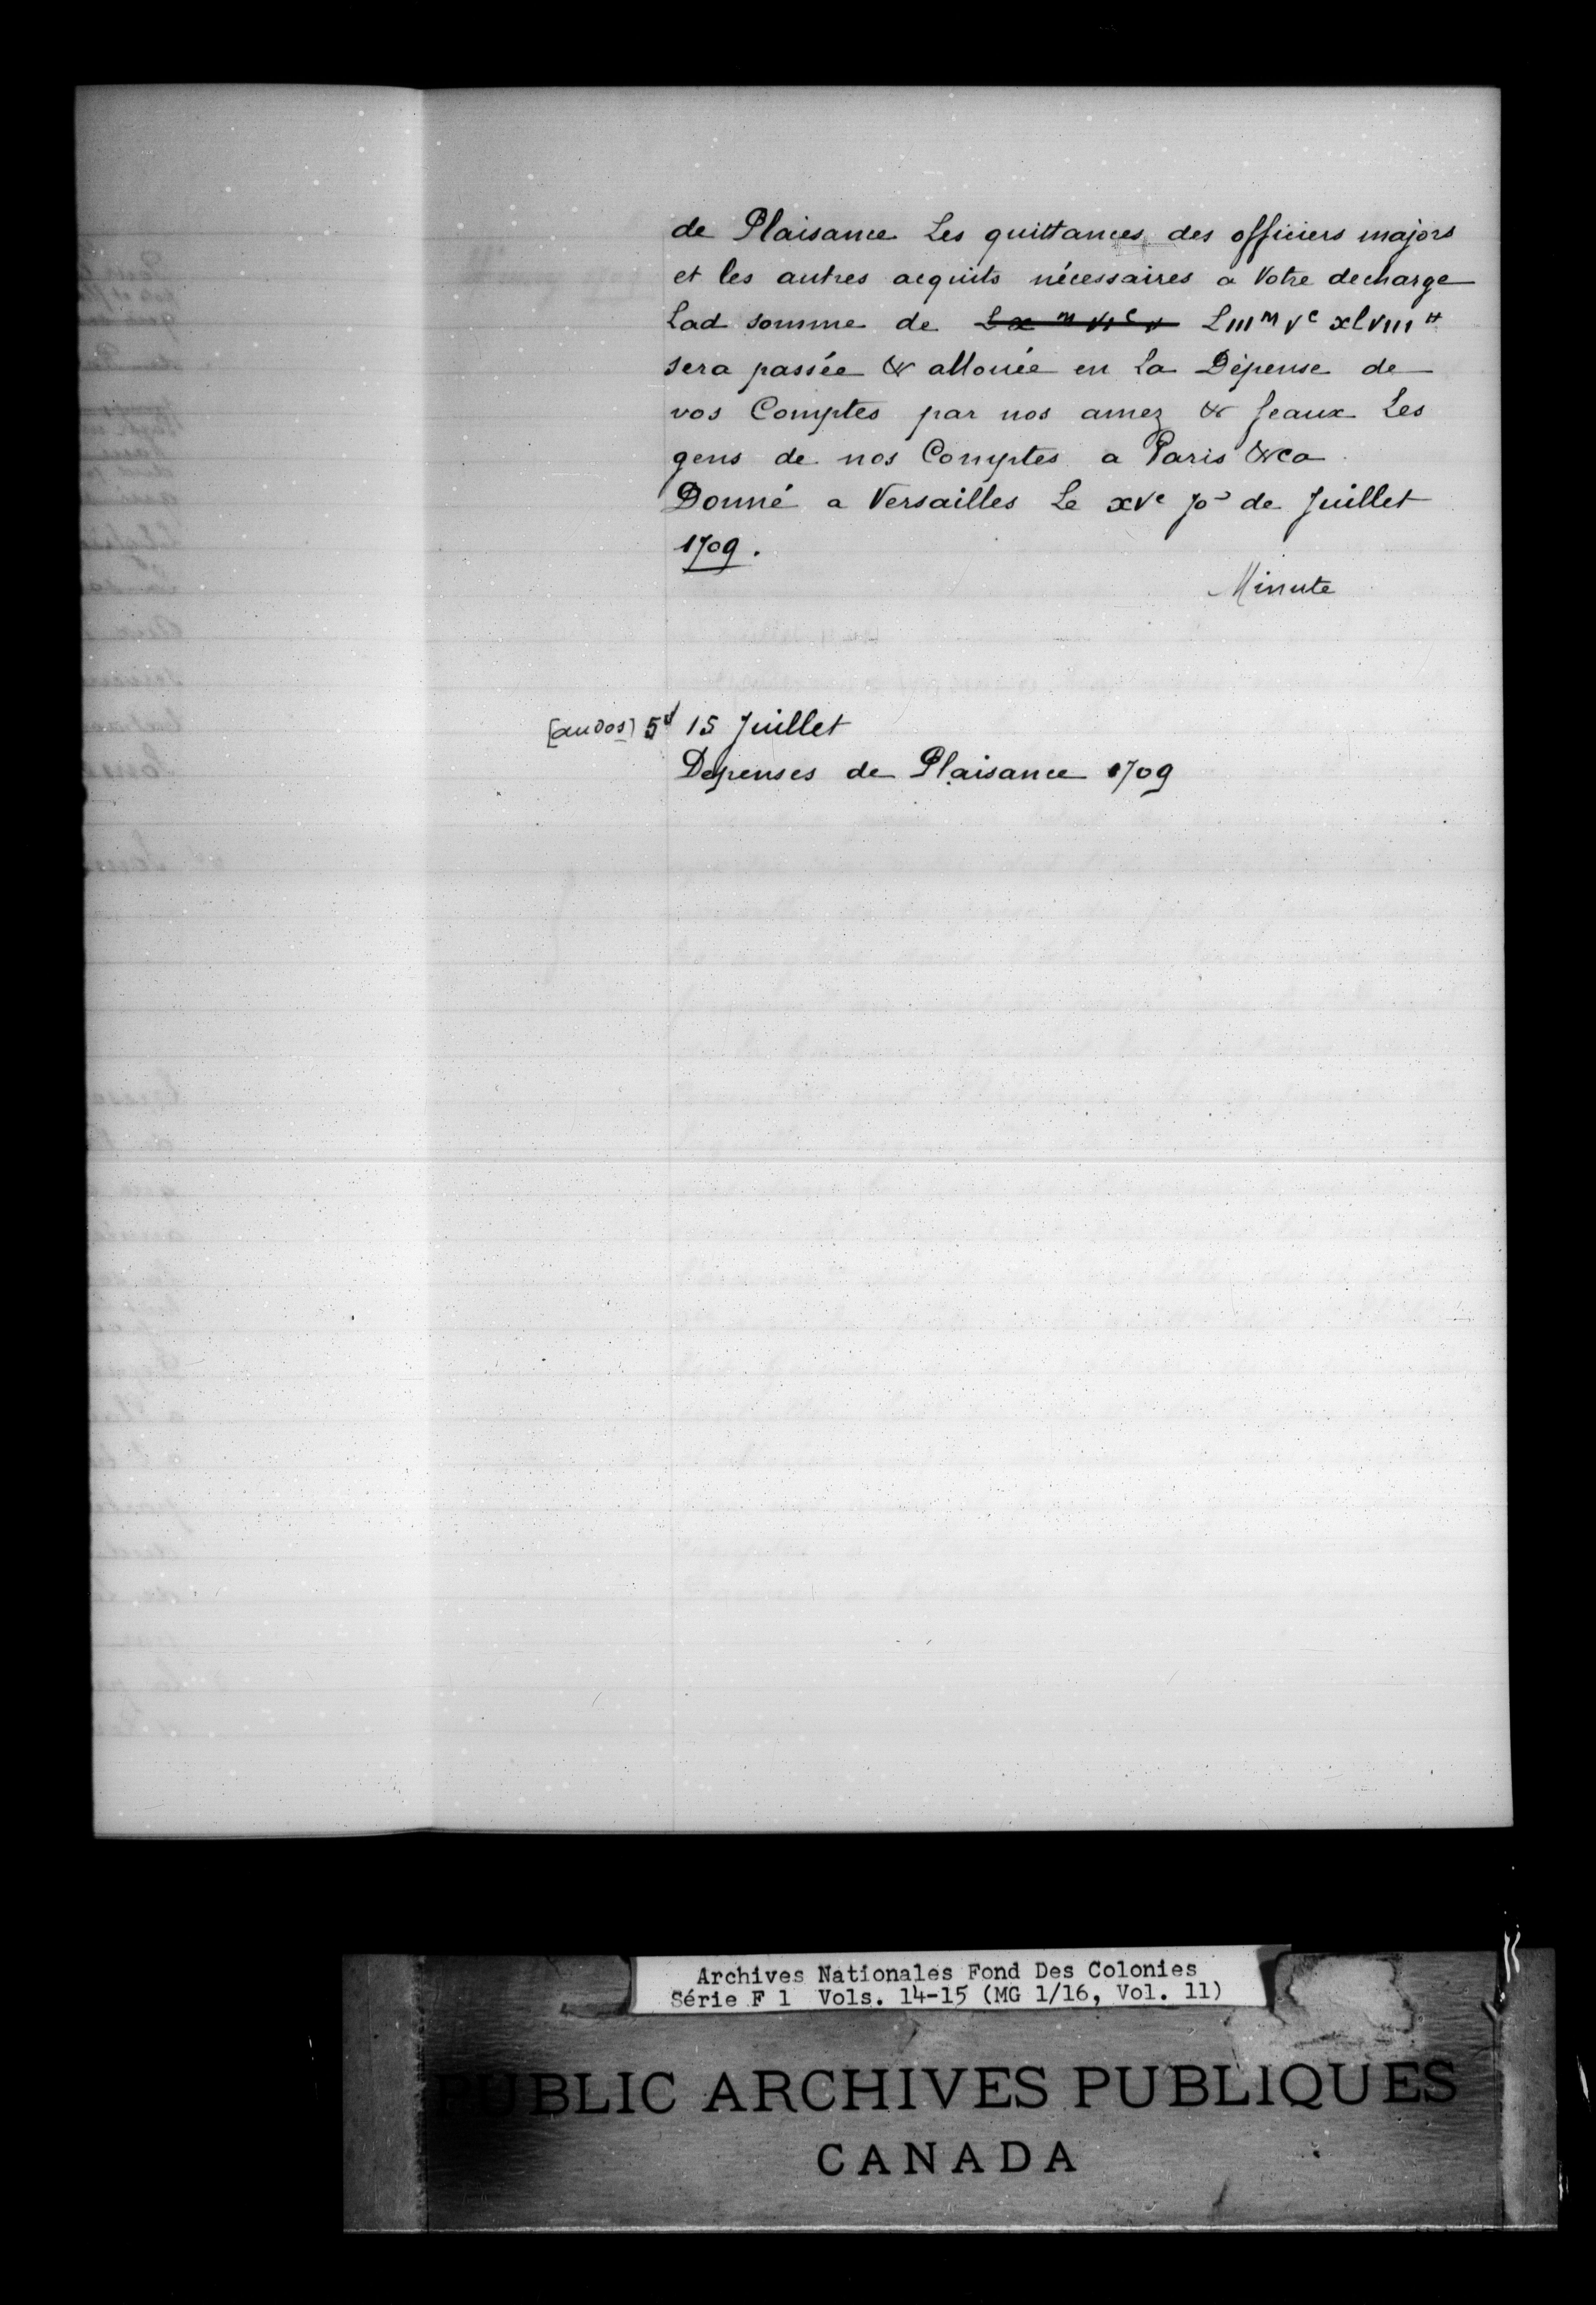 de Plaisance Les quittances des officiers majors
et les autres acquits nécessaires a Votre decharge
Lad somme de Lx m VIc v LIIIM Vc xlVIII ₶
sera passée & allouée en La Dépense de
vos Comptes par nos amez & feaux Les
gens de nos Comptes a Paris &ca
Donné a Versailles Le xve jor de Juillet
1709.
Minute
[au dos] 5d 15 Juillet
Depenses de Plaisance 1709
Archives Nationales Fond Des Colonies
Série F 1 Vols. 14-15 (MG 1/16, Vol. 11)
PUBLIC ARCHIVES PUBLIQUES
CANADA